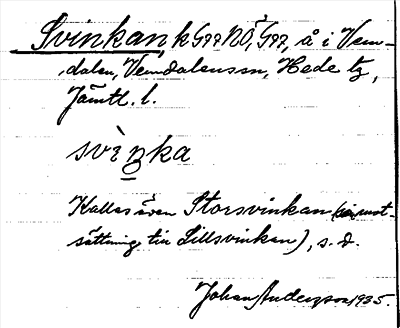 Svinkan, k G99 NÖ, G99, å i Vem-
dalen, Vemdalens sn, Hede tg,
Jämtl. l.
svìŋka
Kallas även Storsvinkan (i mot-
sättning till Lillsvinkan), s. d.
Johan Anderson 1935.